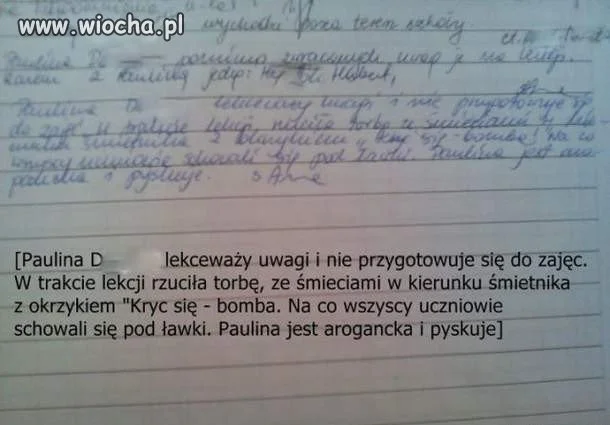 www.wiocha.pl
wychodzi poza teren szkoły.
Paulina D pomimo zwracanych uwag je na lekcji.
Razem z Pauliną
Paulina D lekceważy uwagi i nie przygotowuje się
do zajęć. W trakcie lekcji rzuciła torbę ze śmieciami w kie-
runku śmietnika z okrzykiem "kryć się - bomba! Na co
wszyscy uczniowie schowali się pod ławki. Paulina jest aro-
gancka i pyskuje.
[Paulina D lekceważy uwagi i nie przygotowuje się do zajęc.
W trakcie lekcji rzuciła torbę, ze śmieciami w kierunku śmietnika
z okrzykiem "Kryc się - bomba. Na co wszyscy uczniowie
schowali się pod ławki. Paulina jest arogancka i pyskuje]